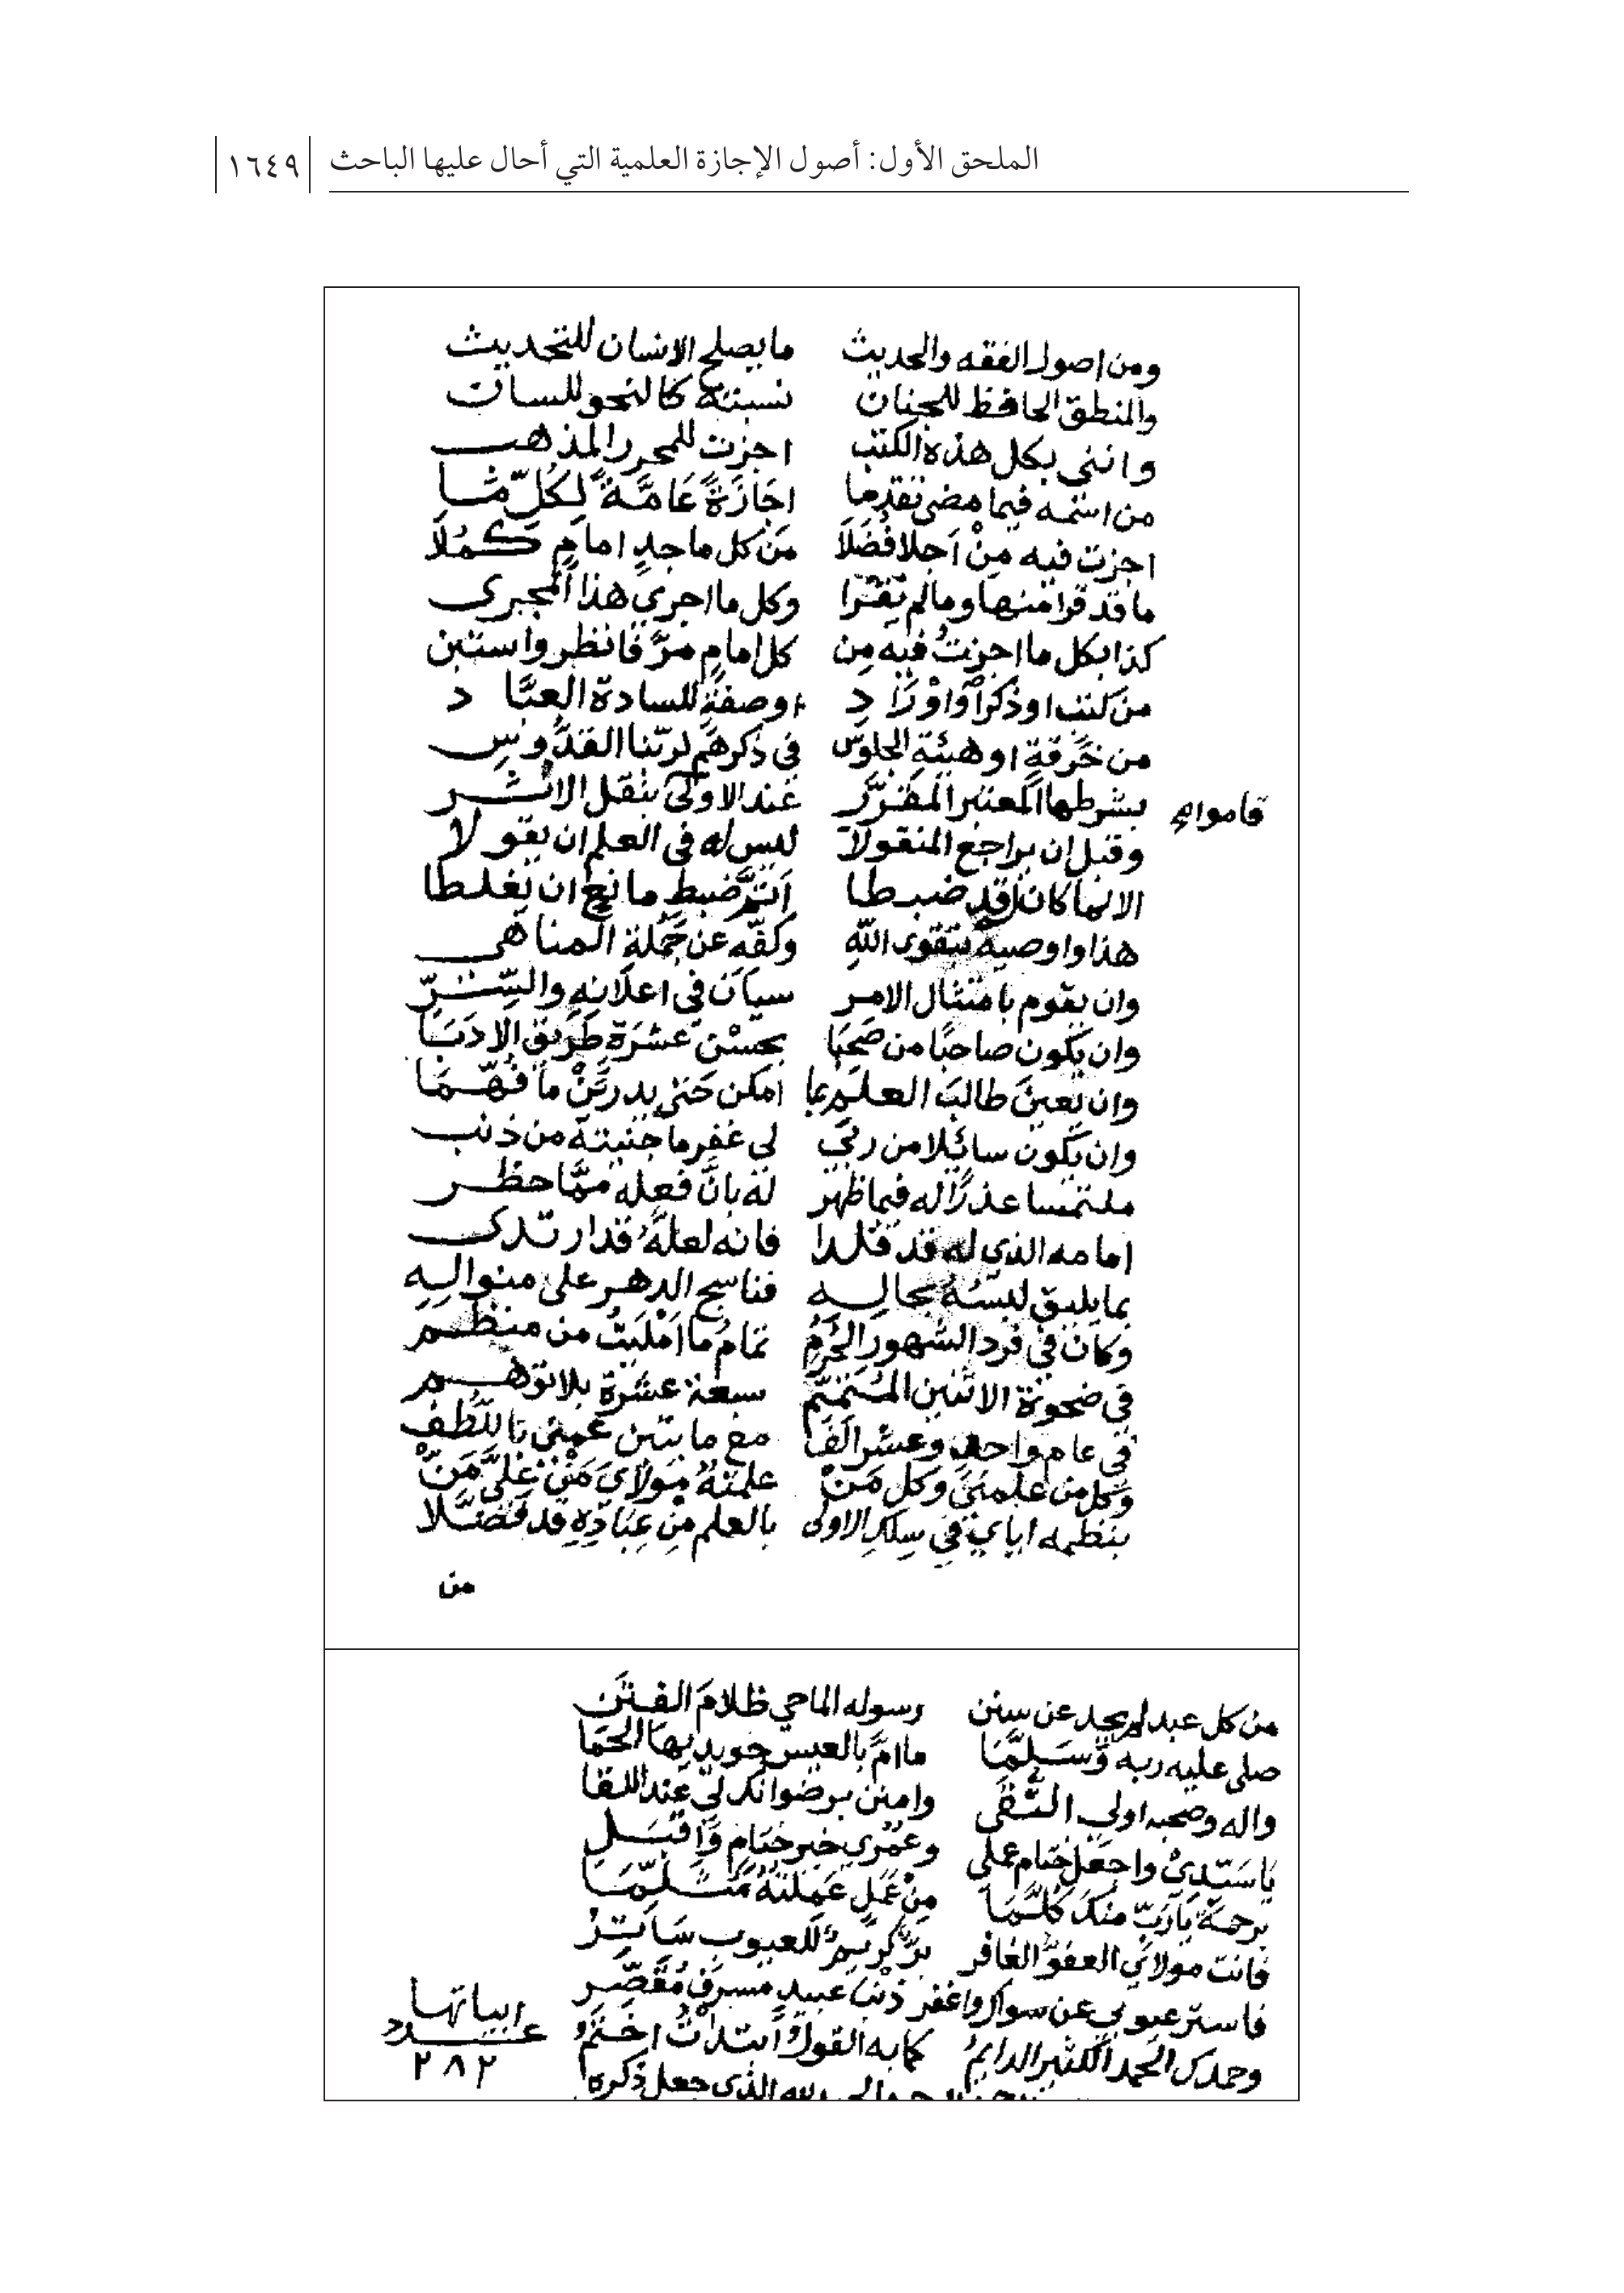 الملحق الأول: أصول الإجازة العلمية التي أحال عليها الباحث ١٦٤٩
ومن اصول الفقه والحديث ما يصلح الانسان للتحديث
والمنطق الحافظ للجنان نسبته كالنحو للسان
وانني بكل هذه الكتب اجزت للمحرر المذهب
من اسمه فيما مضى تقدما اجَازَةً عَامَّةً لِكُلِّ مَا
اجزت فيه مِنْ اَجلا فُضَلَا مِن كل ماجدٍ امامٍ كَمُلَا
ما قد قرا منها وما لم يَقْرَا وكل ما اجرى هذا المجرى
كذا بكل ما اجزتُ فيه مِن كل امامٍ مرَّ فانظر واستبن
من كتب او ذكر اَو اَوْرَادِ او صفةٍ للسادة العبَّاد
من خرقةٍ او هيئةِ الجلوس في ذكرهم لربنا القدُّوس
بشرطها المعتبر المقرَّر عند الاولى بنقل الاثر
وقبل ان يراجع المنقولا ليس له في العلم ان يقولا
الا لما كان قد ضبطا اتمَّ ضبطٍ مانع ان يغلطا
هذا واوصيه بتقوى اللهِ وكفّه عن جُملةِ المناهي
وان يقوم بامتثال الامر سيان في اعلانه والسِّرّ
وان يكون صاحبًا من صَحِبَا بحسْن عشرَة طريق الادبَا
وان يعينَ طالبَ العلم بما امكن حتى يدرِيَنْ ما فُهِّمَا
وان يكون سائلا من ربّي لي غفر ما جنيته من ذنب
ملتمسا عذرًا له فيما ظهر له بانَّ فعله ممَّا حظر
امامه الذي له قد قلدا فانه لعلهُ قد ارتدى
بما يليق لبسُهُ بحالِهِ فناسج الدهر على منوالِهِ
وكان في فرد الشهور الحُرُمِ تمامُ ما اَمْلَيتُ من منظم
في ضحوة الاثنين المُتَمّمِ سبعة عشرة بلا توهم
في عام واحد وعشر الفا مع مايتين عمني باللُّطف
وكل من علمني وكل مَنْ علمتهُ مولايَ مَنْ عليَّ مَنّْ
بنظمه اياي في سِلكِ الاولى بالعلم مِن عِبَادِهِ قد فَضَّلا
من
من كل عبد لم يحد عن سنن رسوله الماحي ظلامَ الفِتَن
صلى عليه ربه وَسَلَّمَا ما امَّ بالعيس حويديها الحمَا
واله وصحبه اولي التُّقَى وامنن برضوانك لي عند اللقا
يا سَيّدِيْ واجعَل ختام عملي وعمْري خير ختامٍ وَاقْبَلِ
برحمةٍ يا رَبّ منك كُلَّمَا مِن عَملٍ عَمِلتهُ مُسَلّمَا
فانت مولاي العفوُّ الغافر برٌّ كريمٌ للعيوب سَاتِرُ
فاستر عيوبي عن سواك واغفر ذنبَ عبيدٍ مسرفٍ مُقَصِّر
وحمدك الحمد الكثير الدايمُ كما به القولَ ابتدأتُ اَختمُ
الذي جعل ذكره
ابياتها
عدد
٢٨٢